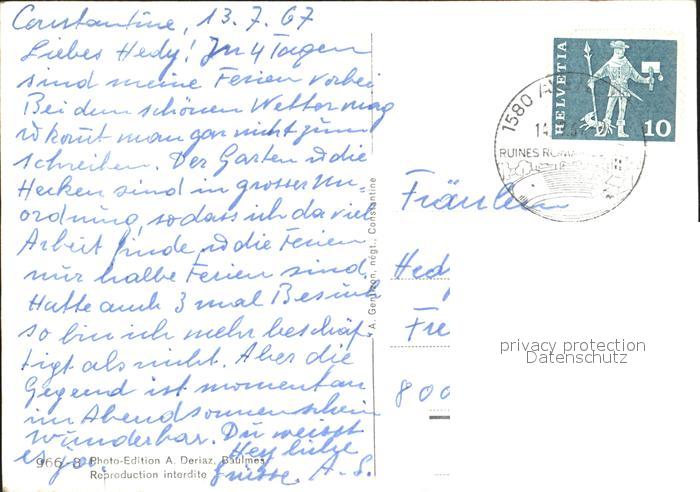 Constantine, 13.7.67
Liebes Hedy! In 4 Tagen
sind meine Ferien vorbei
Bei dem schönen Wetter mag
u kommt man gar nicht zum
schreiben. Der Garten u die
Hecken sind in grosser Un-
ordnung, sodass ich da viel
Arbeit finde, u die Ferien
nur halbe Ferien sind.
Hatte auch 3 mal Besuch
so bin ich mehr beschäf-
tigt als nicht. Aber die
Gegend ist momentan
im Abendsonnenschein
wunderbar. Du weisst
es ja. Herzliche
Grüsse. A. S.
966 8 Photo-Edition A. Deriaz, Baulmes
Reproduction interdite
A. négt., Constantine
HELVETIA
10
1580
14.
RUINES
Fräulein
Hed
Fre
800
privacy protection
Datenschutz